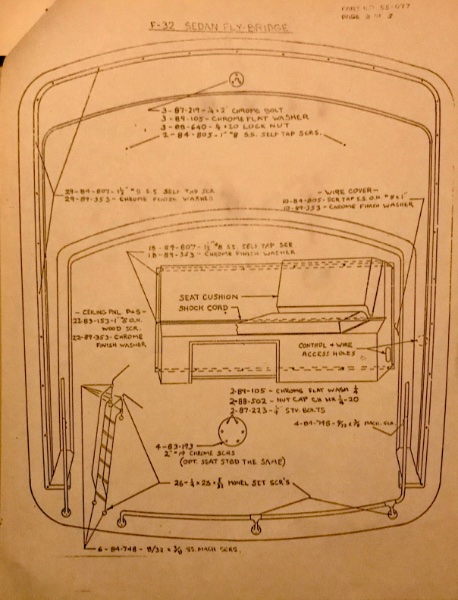 PART NO. 55-077
PAGE 2 OF 2
F-32 SEDAN FLY-BRIDGE
3-87-219-¼ x 2" CHROME BOLT
3-89-105-CHROME FLAT WASHER
3-88-640-¼ x 20 LOCK NUT
2-84-805-1" #8 S.S. SELF TAP SCRS.
29-84-807-1½" #8 S.S SELF TAP SCR
29-89-353-CHROME FINISH WASHER
-WIRE COVER-
10-84-805-SCR TAP S.S. O.H. #8 x 1"
10-89-353-CHROME FINISH WASHER
18-84-807-1½" #8 S.S. SELF TAP SCR
18-89-353-CHROME FINISH WASHER
SEAT CUSHION
SHOCK CORD
-CEILING PNL. P&S-
22-83-153-1" O.H.
WOOD SCR.
22-89-353-CHROME
FINISH WASHER
CONTROL & WIRE
ACCESS HOLES
2-89-105-CHROME FLAT WASH ¼
2-88-502-NUT CAP CH ¼-20
2-87-223-¼" STV. BOLTS
4-84-748- MACH.
4-83-193
2" #14 CHROME SCRS
(OPT. SEAT STBD THE SAME)
26-¼ x 28 x SET SCR'S
6-84-748- x ¾ SS. MACH SCRS.